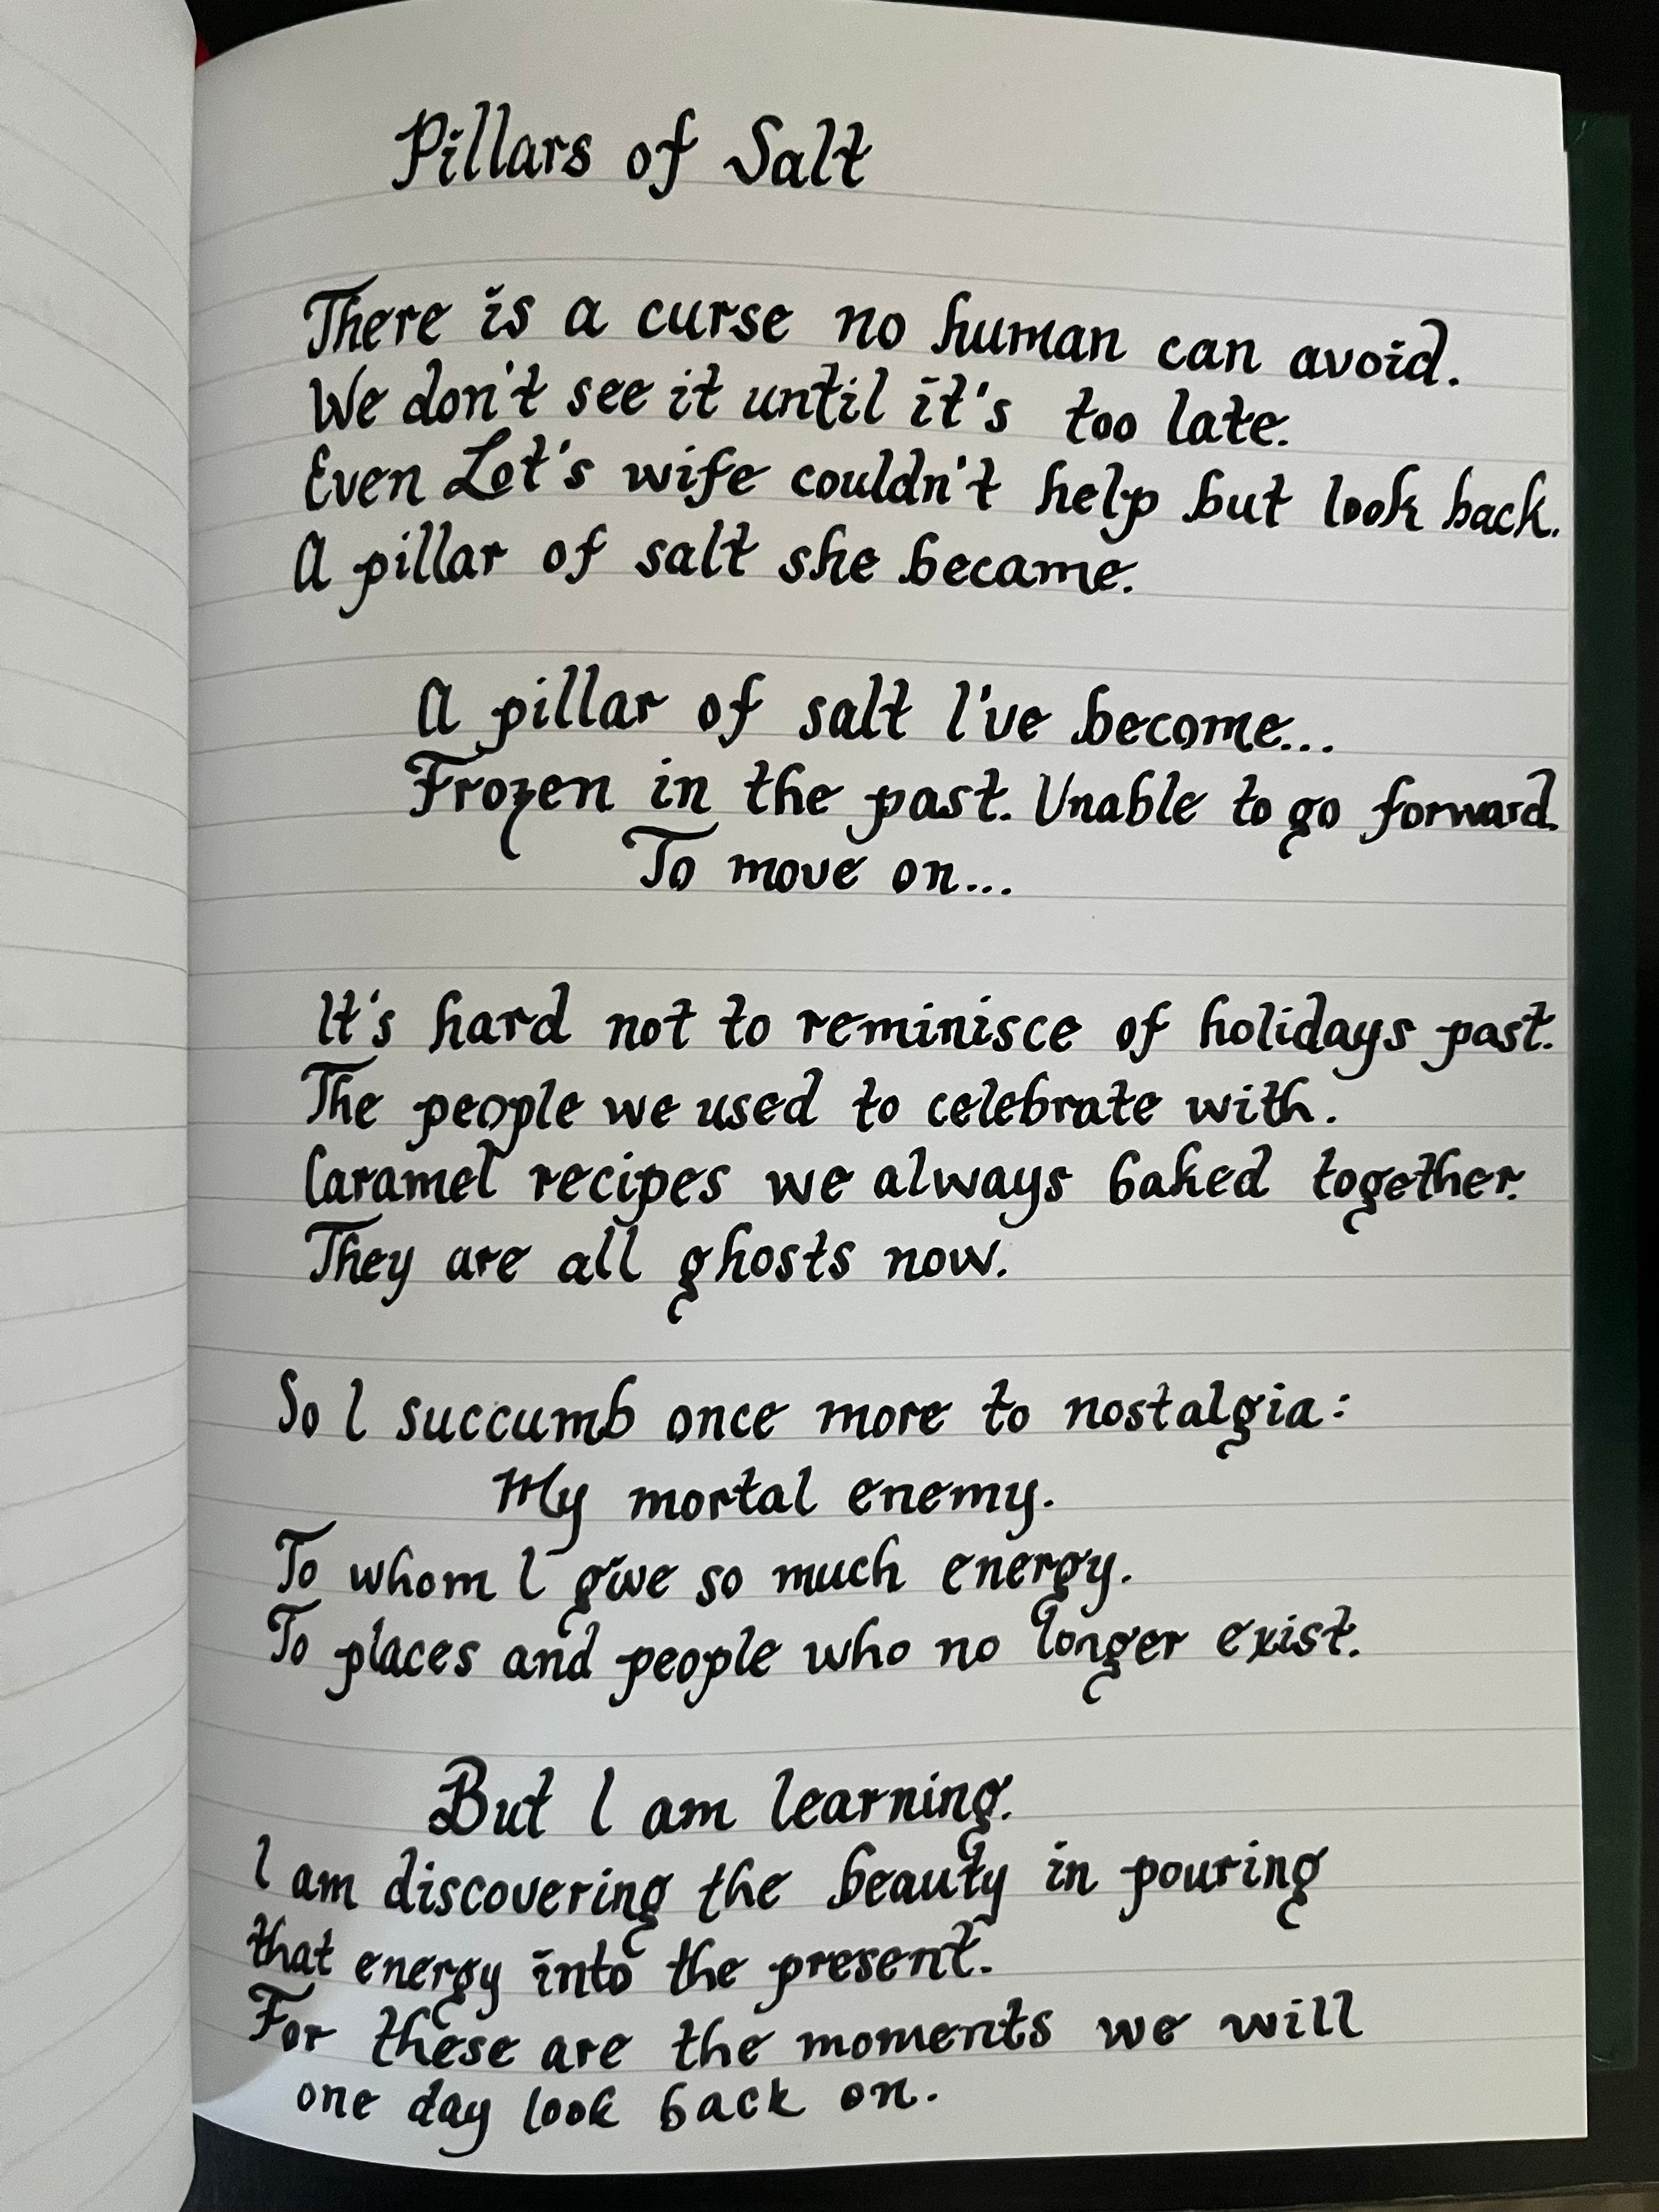 Pillars of Salt
There is a curse no human can avoid.
We don't see it until it's too late.
Even Lot's wife couldn't help but look back.
A pillar of salt she became.
A pillar of salt I've become...
Frozen in the past. Unable to go forward.
To move on...
It's hard not to reminisce of holidays past.
The people we used to celebrate with.
Caramel recipes we always baked together.
They are all ghosts now.
So I succumb once more to nostalgia:
My mortal enemy.
To whom I give so much energy.
To places and people who no longer exist.
But I am learning.
I am discovering the beauty in pouring
that energy into the present.
For these are the moments we will
one day look back on.